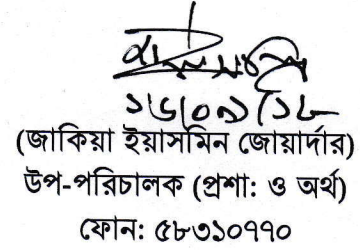 ১৬/০৯/১৮
(জাকিয়া ইয়াসমিন জোয়ার্দার)
উপ-পরিচালক (প্রশা: ও অর্থ)
ফোন: ৫৮৩১০৭৭০